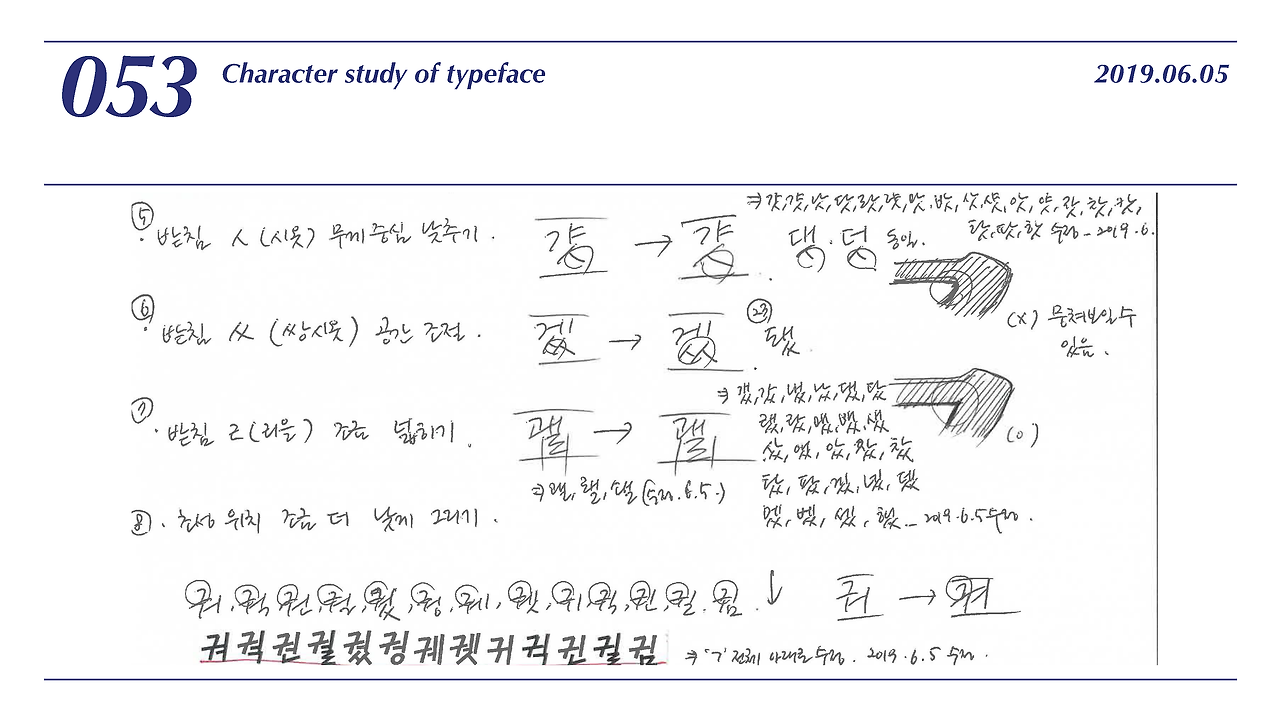 053 Character study of typeface 2019.06.05
⑤. 받침 ㅅ (시옷) 무게중심 낮추기.
걌 → 걌
댓. 덧 동일.
⇒ 갓, 갯, 낫, 닷, 랏, 럇, 맛, 밧, 삿, 샷, 앗, 얏, 잣, 찻, 캇,
탓, 팟, 핫 수정 - 2019.6.
(x) 뭉쳐보일 수
있음.
⑥. 받침 ㅆ (쌍시옷) 공간 조절.
겠 → 겠
㉓ 됐.
⇒ 갰, 갔, 냈, 났, 댔, 탔
랬, 랐, 맸, 뱄, 샜
샀, 앴, 았, 짰, 찼
탔, 팠, 겠, 넸, 뎄
멨, 벴, 셌, 헸 - 2019.6.5 수정.
(o)
⑦. 받침 ㄹ (리을) 조금 넓히기.
괠 → 괠
(수정. 6.5.)
⑧. 초성 위치 조금 더 낮게 그리기.
궈, 궉, 권, 궐, 궜, 궝, 궤, 궷, 귀, 귁, 귄, 귈, 귐. ↓
궈 → 궈
궈 궉 권 궐 궜 궝 궤 궷 귀 귁 귄 귈 귐
⇒ 'ㄱ' 전체 아래로 수정. 2019.6.5 수정.